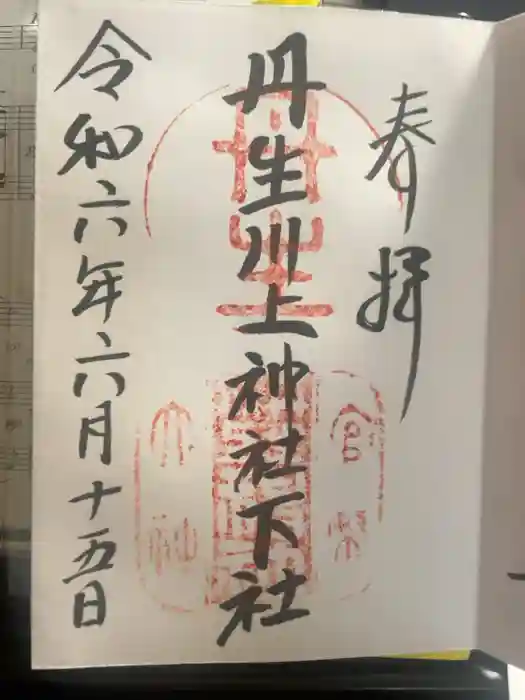 奉拝
丹生川上神社下社
令和六年六月十五日
官幣
大社